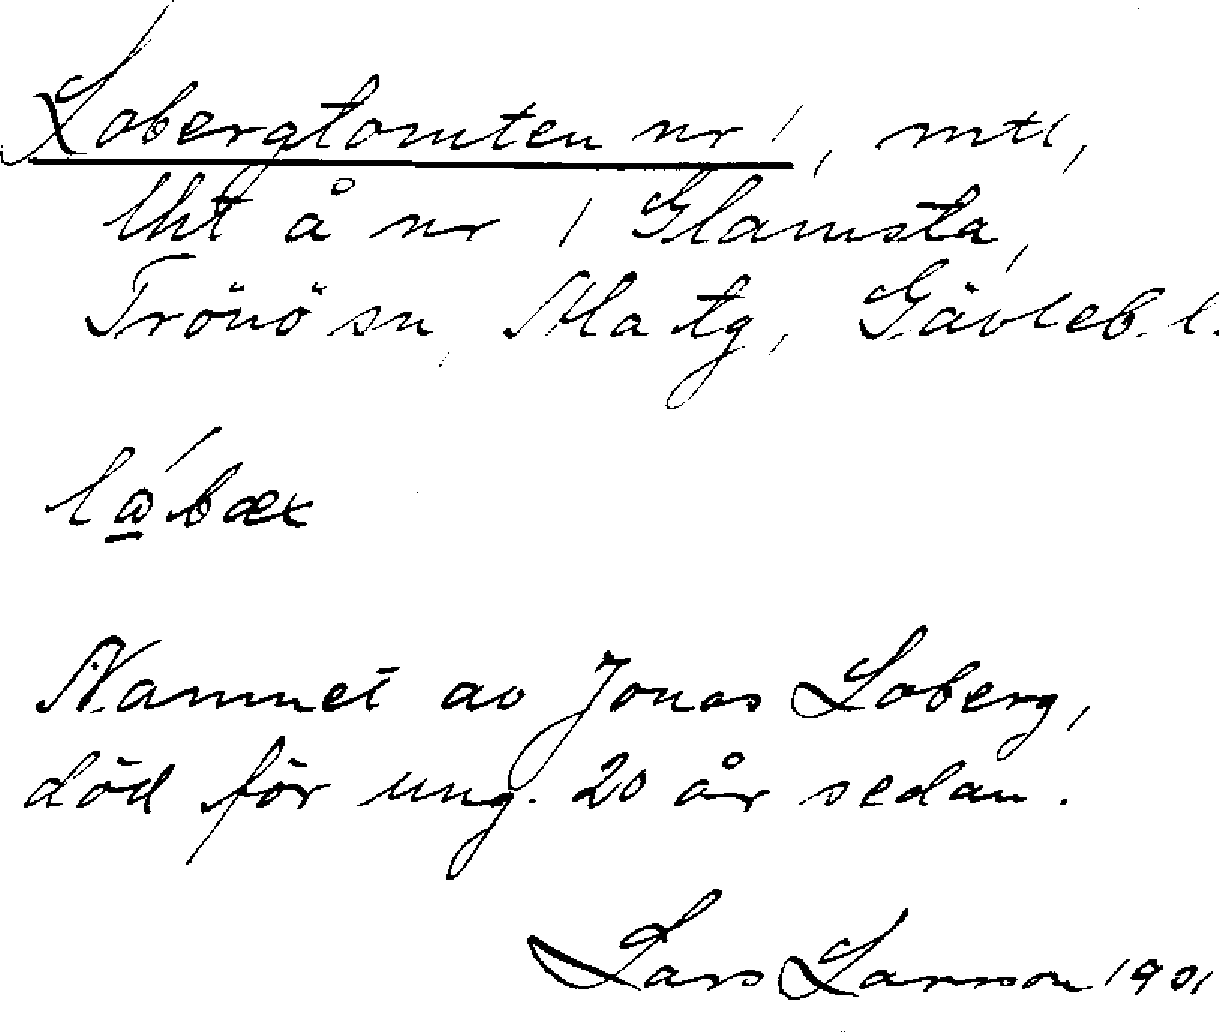 Lobergtomten nr 1, mtl,
lht å nr 1 Glamsta,
Trönö sn, Ala tg, Gävleb. l.
Namnet av Jonas Loberg,
död för ung. 20 år sedan.
Lars Larsson 1901